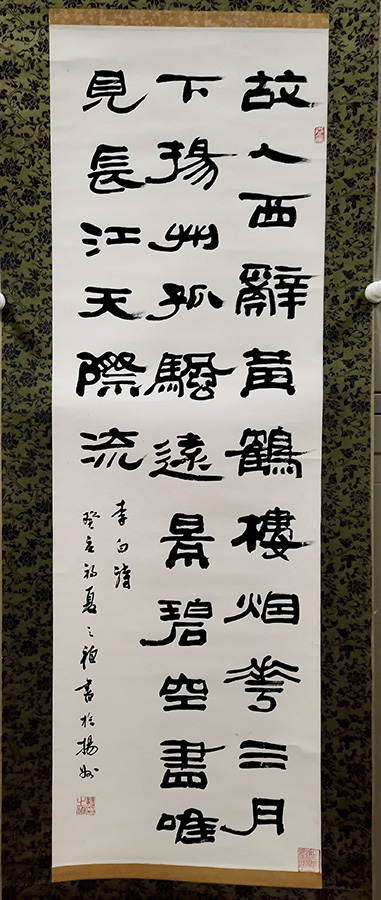 故人西辭黃鶴樓烟花三月
下揚州孤颿遠景碧空盡唯
見長江天際流
李白詩
癸亥初夏之書於揚州